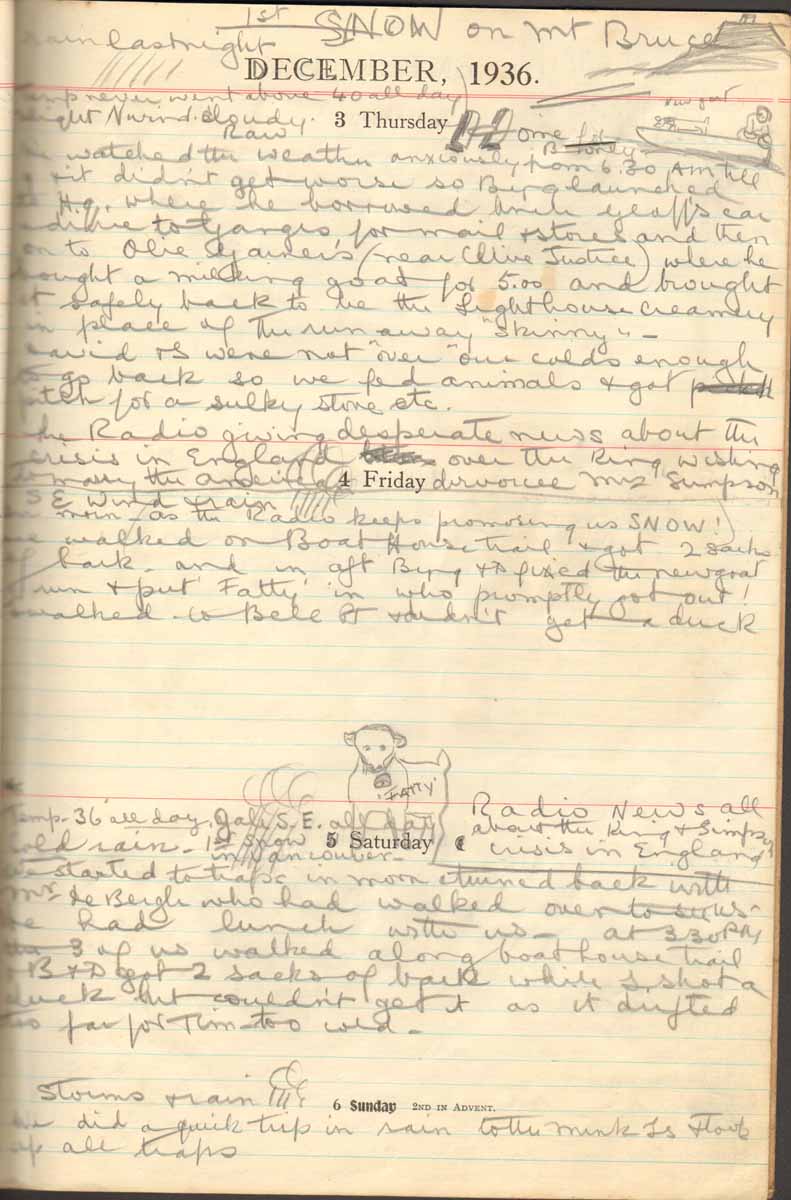 1st SNOW on Mt Bruce
rain last night
DECEMBER, 1936.
Temp never went above 40 all day
Light N wind. cloudy.
Raw
3 Thursday
new goat
watched the weather anxiously from 6.30 AM till
it didn't get worse so Bing launched
H.q. where he borrowed car
drive to Ganges for mail & stores and then
on to Olie Garner's (near Clive Justice) where he
bought a milking goat for 5.00 and brought
it safely back to be the Lighthouse creamery
in place of the runaway "Skinny" -
David & I were not "over" our colds enough
to go back so we fed animals & got
pitch for a sulky stove etc.
The Radio giving desperate news about the
crisis in England over the King wishing
to marry the American divorcee Mrs Simpson
4 Friday
S E Wind & rain
morn - as the Radio keeps promising us SNOW!
we walked on Boat House trail & got 2 sacks
of bark - and in aft Bing & D fixed the new goat
run & put 'Fatty' in who promptly got out!
walked to Bell Pt & didn't get a duck
'FATTY'
Temp - 36 all day. Gale S.E. all day
cold rain - 1st Snow
in Vancouver -
5 Saturday
Radio News all
about the King & Simpson
crisis in England
we started to traps in morn & turned back with
Mr de Bergh who had walked over to see us -
he had lunch with us - at 3.30 PM
the 3 of us walked along boathouse trail
B & D got 2 sacks of bark while I shot a
duck but couldn't get it as it drifted
too far for Tim - too wild -
Storms & rain
6 Sunday 2ND IN ADVENT.
We did a quick trip in rain to the Mink Is & took
up all traps